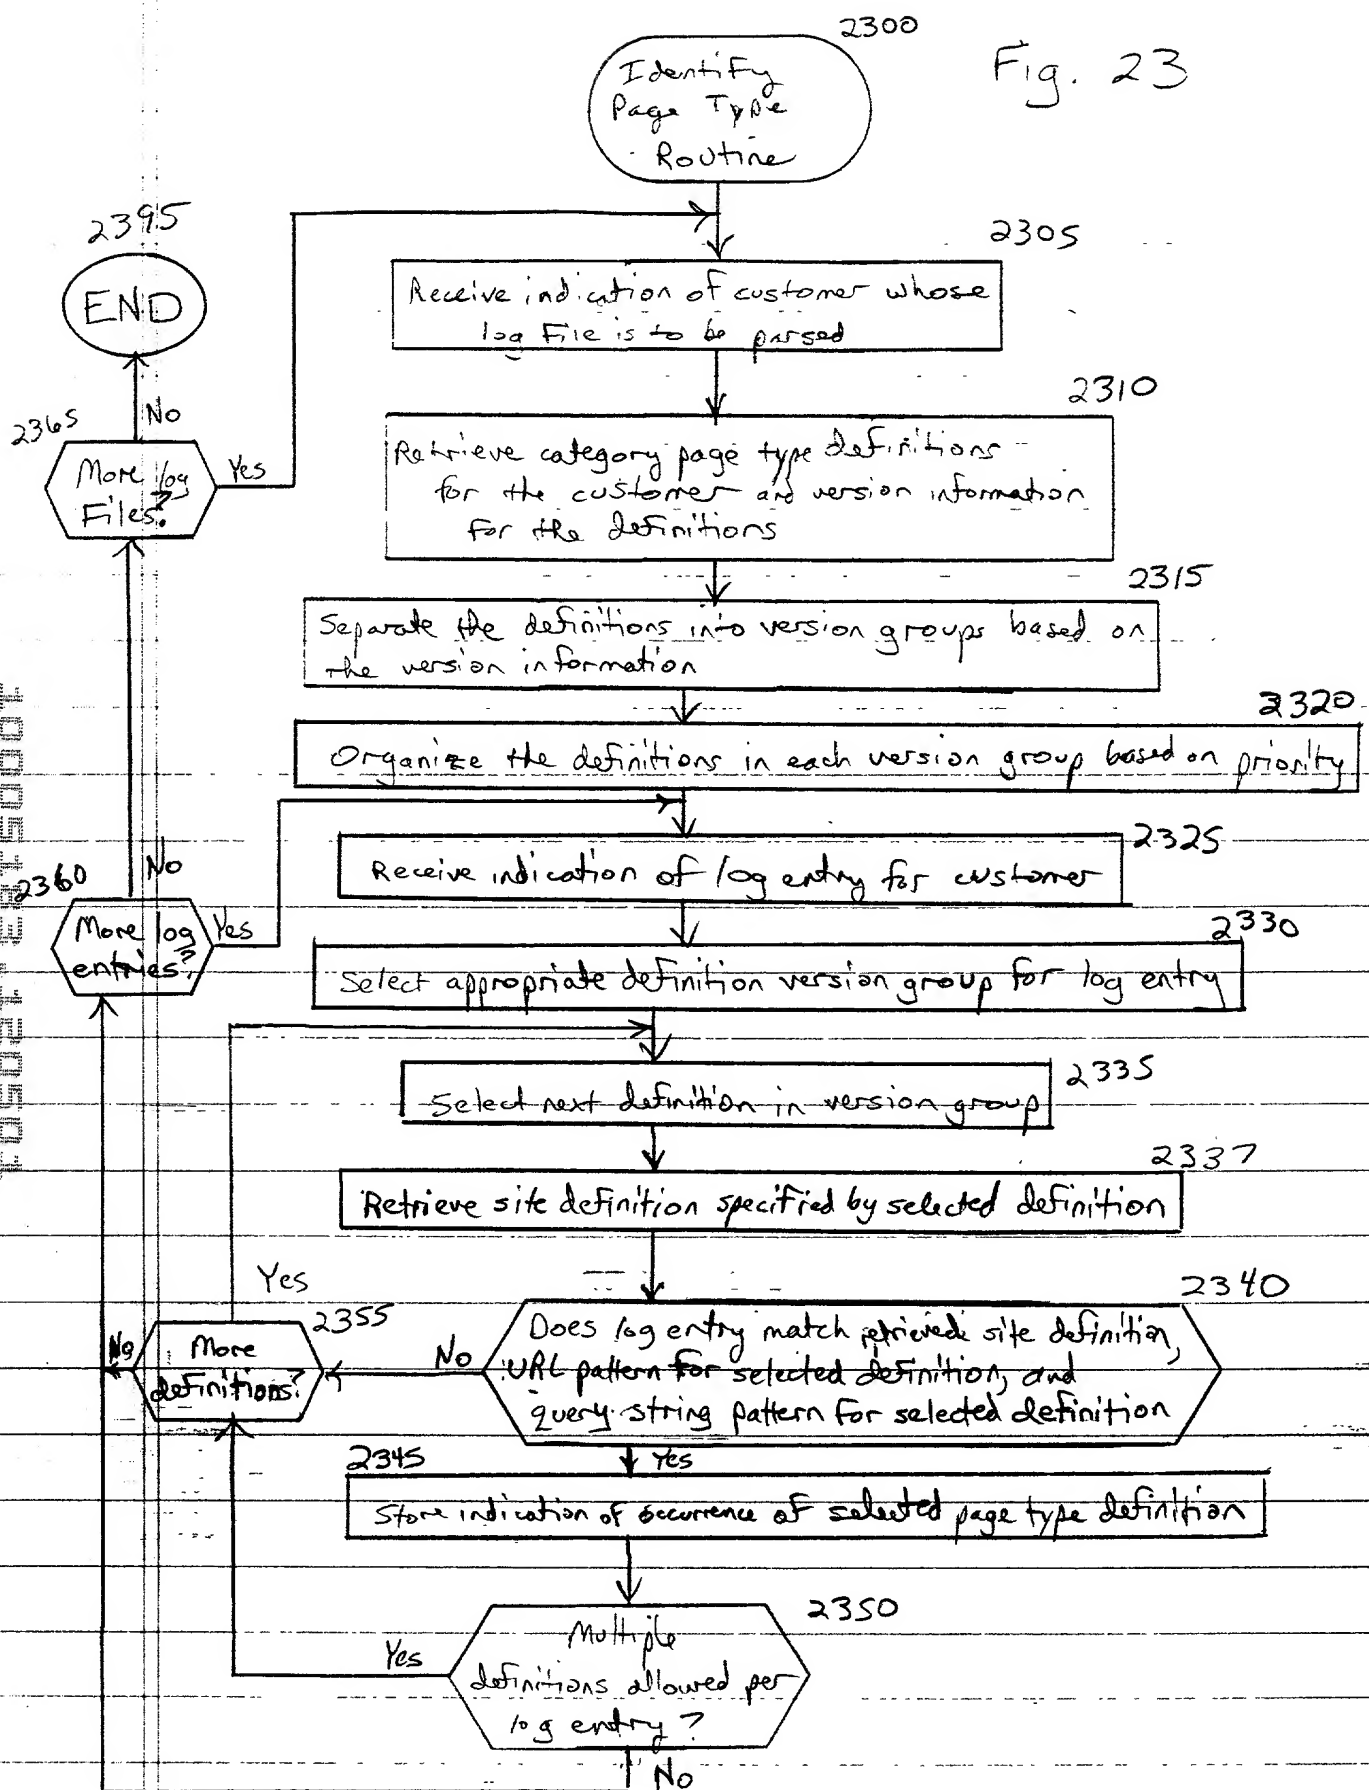 2300
Fig. 23
Identify
Page Type
Routine
2395
END
2305
Receive indication of customer whose
log File is to be parsed
2310
No
2365
More log
Files?
Yes
Retrieve category page type definitions
for the customer and version information
for the definitions
2315
Separate the definitions into version groups based on
the version information
2320
Organize the definitions in each version group based on priority
2325
Receive indication of log entry for customer
No
2360
More log
entries?
Yes
2330
Select appropriate definition version group for log entry
2335
Select next definition in version group
2337
Retrieve site definition specified by selected definition
Yes
2355
More
definitions?
No
No
2340
Does log entry match retrieved site definition,
URL pattern for selected definition, and
query string pattern for selected definition
Yes
2345
Store indication of occurrence of selected page type definition
2350
Multiple
definitions allowed per
log entry?
Yes
No